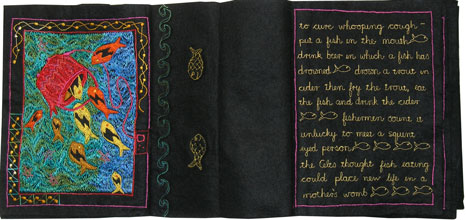 to cure whooping cough -
put a fish in the mouth
drink beer in which a fish has
drowned drown a trout in
cider then fry the trout, eat
the fish and drink the cider
fishermen count it
unlucky to meet a squint
eyed person
the Celts thought fish eating
could place new life in a
mother's womb